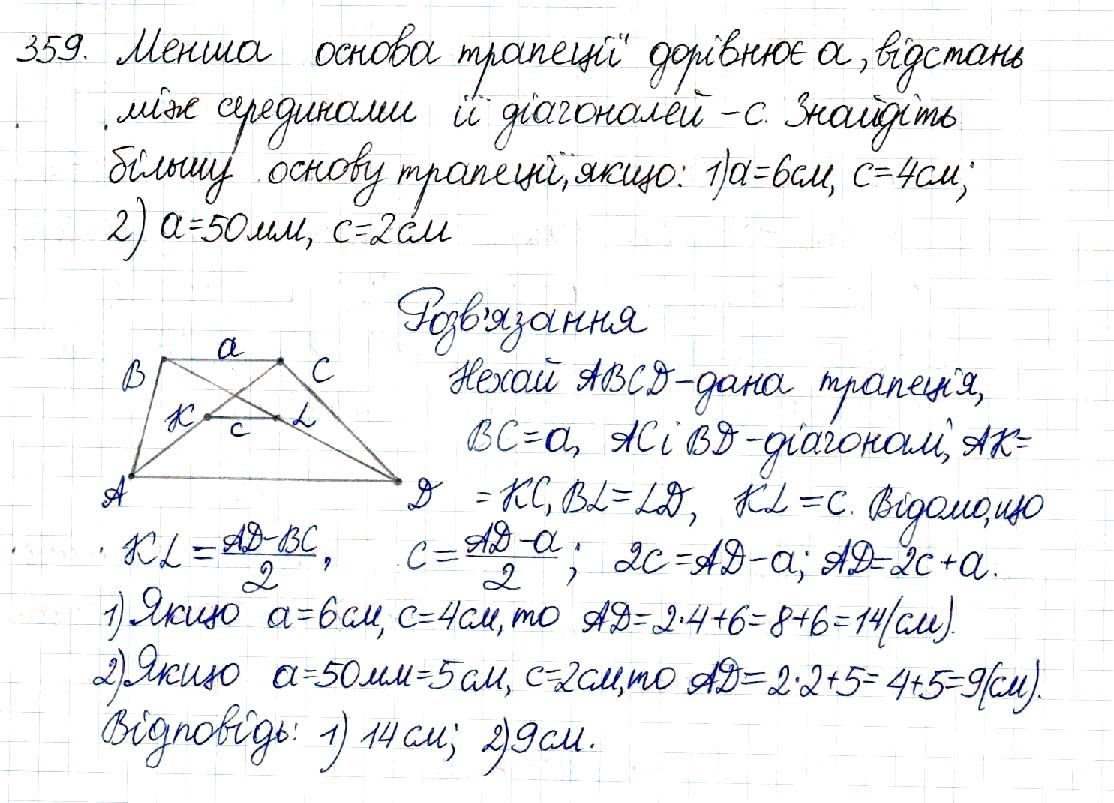 359. Менша основа трапеції дорівнює a, відстань
між серединами її діагоналей - c. Знайдіть
більшу основу трапеції, якщо: 1) a=6см, c=4см;
2) a=50мм, c=2см
Розв'язання
B a C
K c L
A D
Нехай ABCD-дана трапеція,
BC=a, AC і BD-діагоналі, AK=
=KC, BL=LD, KL=c. Відомо, що
KL=(AD-BC)/2, c=(AD-a)/2; 2c=AD-a; AD=2c+a.
1) Якщо a=6см, c=4см, то AD=2·4+6=8+6=14(см).
2) Якщо a=50мм=5см, c=2см, то AD=2·2+5=4+5=9(см).
Відповідь: 1) 14см; 2) 9см.